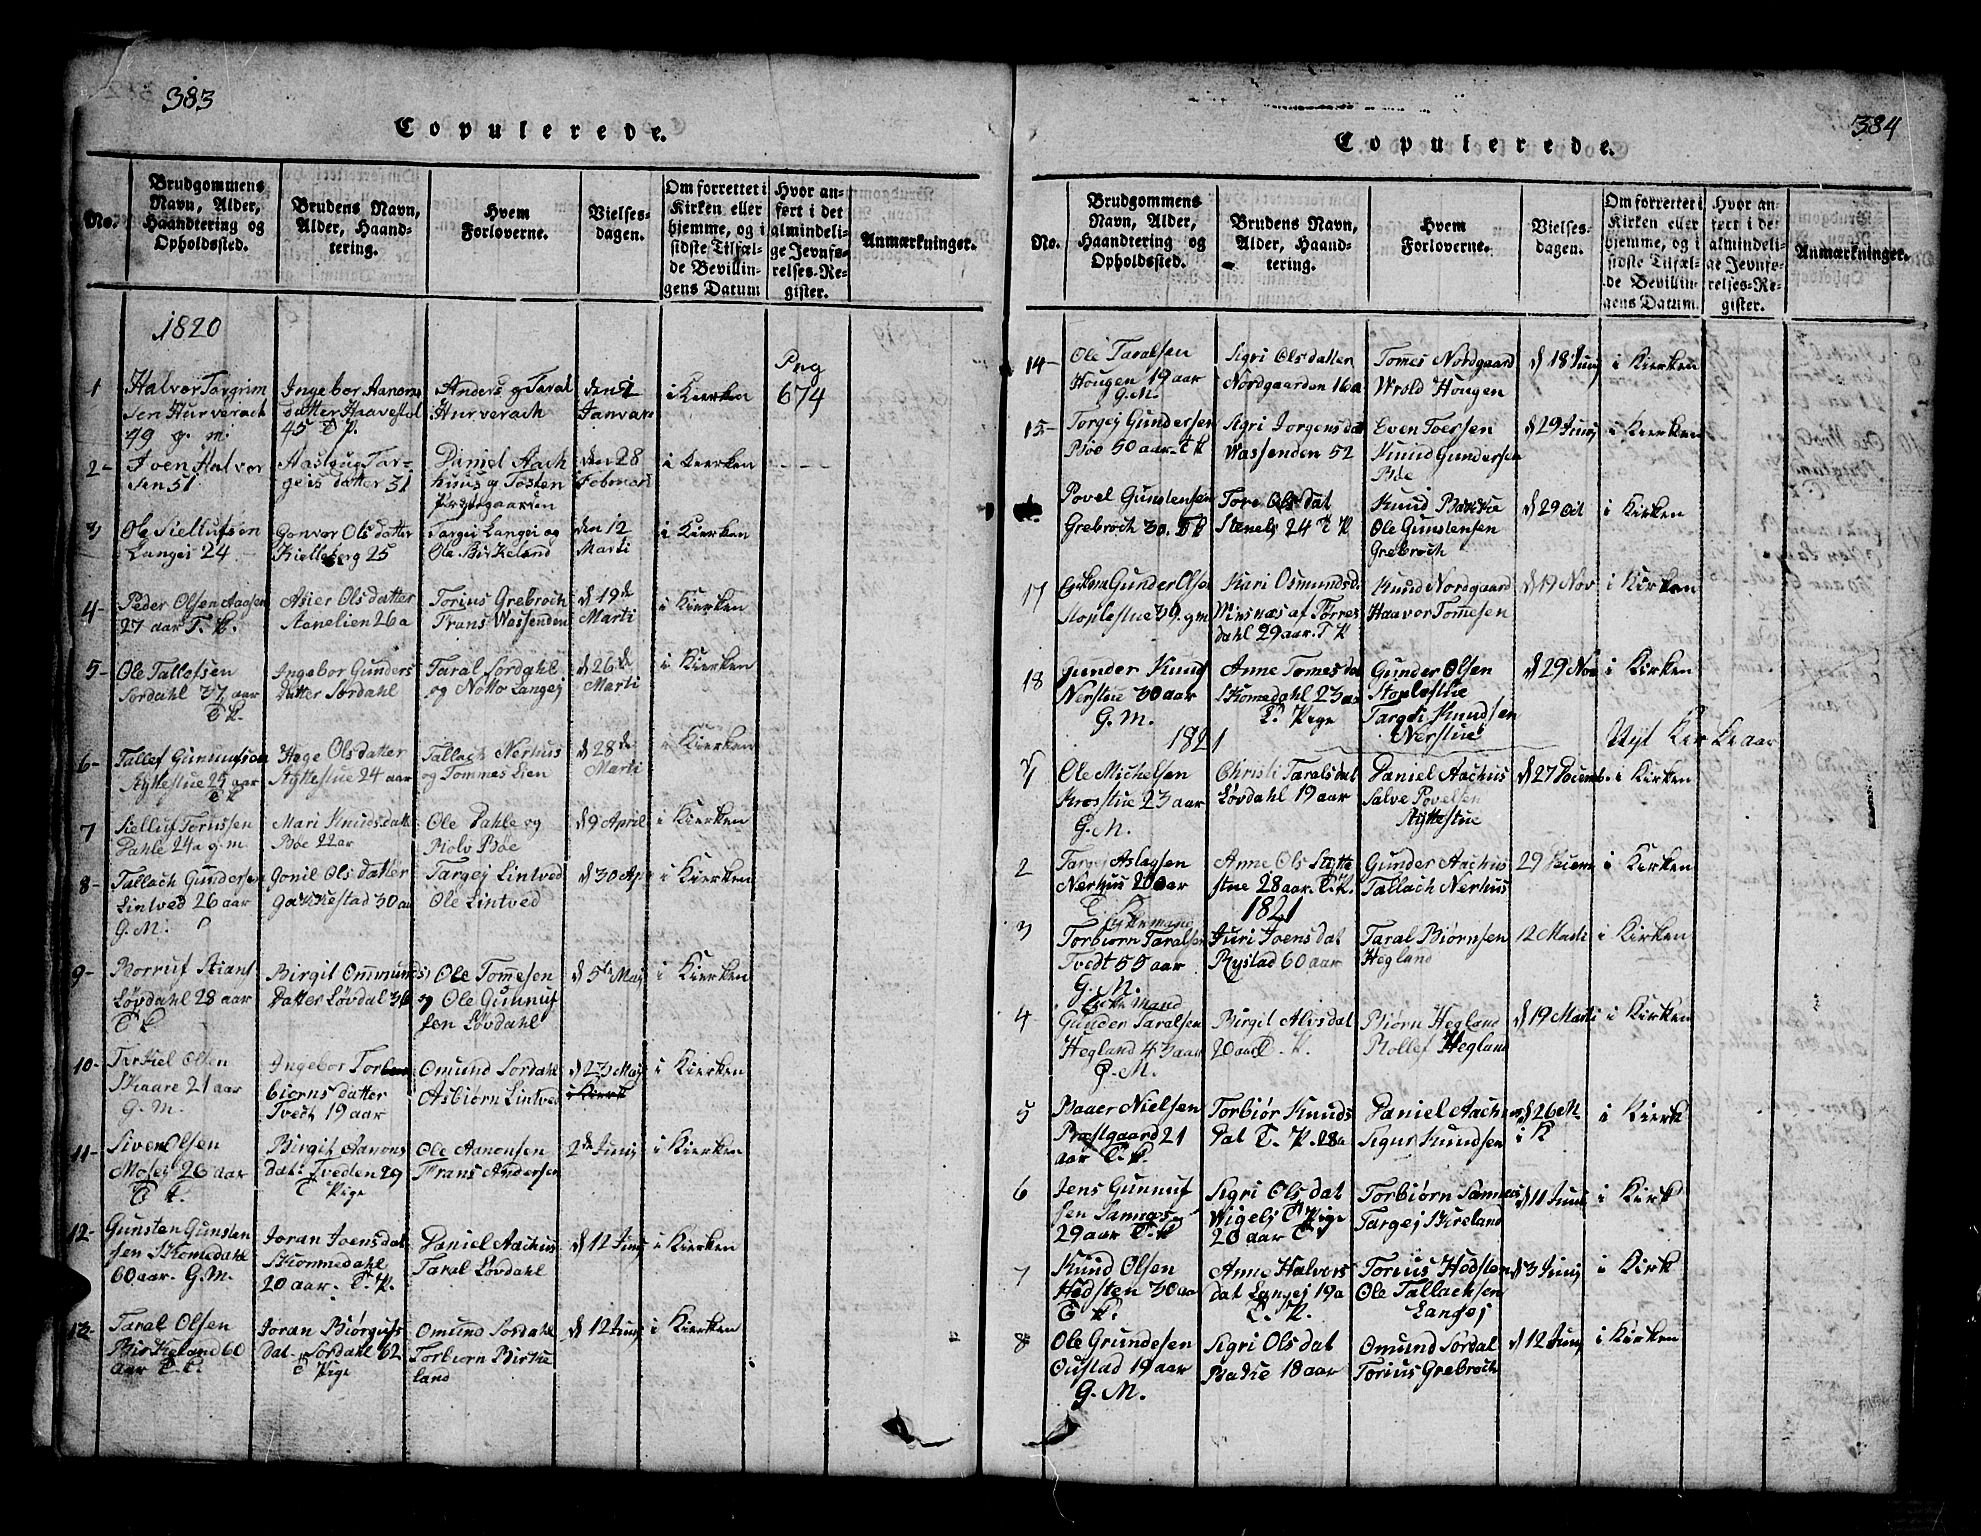 383
Copulerede.
No.
Brudgommens Navn, Alder, Haandtering og Opholdssted.
Brudens Navn, Alder, Haandtering.
Hvem Forloverne.
Vielsesdagen.
Om forrettet i Kirken eller hjemme, og i sidste Tilfælde Bevillingens Datum
Hvor anført i det almindelige Jevnførelses-Register.
Anmærkninger.
1820
1
Halvor Torgrim
sen Hurverach
49 g. m.
Ingebor Aanons
datter Haavestøl
45 T P.
Anders g Taral
Hurverach
den 2
Januar
i Kierken
Pag
674
2-
Joen Halvor
sen 51
Aaslaug Tar-
geis datter 31
Daniel Aach
huus g Tosten
Præstgaarden
den 28
Februari
i Kierken
3
Ole Siellufsen
Langei 24
Gonvor Olsdatter
Kielleberg 25
Targei Langei og
Ole Birkeland
den 12
Marti
i Kierken
4-
Peder Olsen Aagsen
27 aar T. K.
Asier Olsdatter
Aanelien 26 a
Torius Grebroch
Frans Wassenden
d 19de
Marti
i Kierken
5-
Ole Tallefsen
Sordahl 37 aar
T K.
Ingebor Gunders
datter Sordahl
Taral Sordahl
og Notto Langej
d 26de
Marti
i Kierken
6-
Tallef Gunnufsen
Støttestue 25 aar
T K
Hage Olsdatter
Støttestue 24 aar
Tallach Nerhus
og Tommes Lien
d 28de
Marti
i Kierken
7
Sielluf Toriussen
Dahle 24 a g m
Mari Knudsdatt
Bøe 22 ar
Ole Dahle og
Rolv Bøe
d 9 April
i Kierken
8-
Tallach Gundersen
Lintved 26 aar
G. M.
Gonil Olsdatter
Gakkestad 30 aa
Targej Lintved
Ole Lintved
d 30 Apr
i Kierken
9-
Borruf
Løvdahl 28 aar
T K
Birgit Ommunds
Datter Løvdal 36
Ole Tomesen
g Ole Gunnuf
sen Løvdahl
d 5te Maj
i Kierken
10-
Terkiel Olsen
Skaare 21 aar
G. M.
Ingebor Tor
biorns datter
Tvedt 19 aar
Omund Sordahl
Asbiørn Lintved
d 23 Maj
i Kierk
i Kierken
11-
Siven Olsen
Mosej 26 aar
T K.
Birgit Aanons
dat: Tveden 29
T Pige
Ole Aanonsen
Frans Andersen
2de Junij
i Kierken
12-
Gunsten Gunsten
sen Skomedahl
60 aar. G.M.
Joran Joensdat
Skommedahl
20 aar. T. P.
Daniel Aachus
Taral Løvdahl
d 12 Junj
i Kierken
13-
Taral Olsen
Birkeland 60
aar T. K.
Joran Biørgufs
dat- Sordahl 62
T Pige
Omund Sordahl
Torbiørn Birke
land
d 12 Junj
i Kierken
384
Copulerede.
No.
Brudgommens Navn, Alder, Haandtering og Opholdssted.
Brudens Navn, Alder, Haandtering.
Hvem Forloverne.
Vielsesdagen.
Om forrettet i Kirken eller hjemme, og i sidste Tilfælde Bevillingens Datum.
Hvor anført i det almindelige Jevnførelses-Register.
Anmærkninger.
14-
Ole Taralsen
Hougen 19 aar
G. M.
Sigri Olsdatter
Nordgaarden 16 a
Tomes Nordgaard
Wrold Hougen
d 18 Junj
i Kierken
15-
Torgej Gundersen
Bøe 50 aar- T K
Sigri Jorgensdat
Wassenden 52
Even Toersen
Knud Gundersen
Bøe
d 29 Junj
i Kirken
Povel Gunstensen
Grebroch 30. T K
Tore Olsdat
Stenels 24 T P
Knud Bakke
Ole Gunstensen
Grebroch
d 29 Oct
i Kirken
17
Enkem Gunder Olsen
Stoplestue 39. g m
Kari Osmundsd.
Minsnæs af Torres
dahl 29 aar. T P
Knud Nordgaard
Haavor Tomesen
d 19 Nov
i Kirken
18
Gunder Knuds
Nerstue 30 aar
G. M.
Anne Tomesdat
Skomedahl 23 aa
T. Pige
Gunder Olsen
Stoplestue
Targei Knudsen
Nerstue
d 29 Nov
i Kirken
1821
Nyt Kirkeaar
1
Ole Michelsen
Krosstue 23 aar
G. M.
Christi Taralsdat
Løvdahl 19 aar
Daniel Aachus
Salve Povelsen
Støttestue
d 27 Decemb.
i Kirken
2
Targej Aslagsen
Nerhus 20 aar
Anne Ols Støtte
stue 28 aar. T. P.
Gunder Aachus
Tallach Nerhus
29 Decem
i Kirken
1821
3
Enkemand
Torbiørn Taralsen
Tvedt 55 aar
G. M.
Juri Joensdat
Rystad 60 aar
Taral Biørnsen
Hegland
12 Marti
i Kirken
4
Enkemand
Gunder Taralsen
Hegland 43 aar
G. M.
Birgit Alvsdat
20 aar T. P.
Biørn Hegland
Rollef Hegland
d 19 Marti
i Kirken
5
Baaer Nielsen
Præstgaard 21
aar T. K.
Torbiør Knuds
Dat T. P. 28 a
Daniel Aachus
Sigur Knudsen
d 26 M
i K
i Kierk
6
Jens Gunnuf
sen Samnøs
29 aar T. K
Sigri Olsdat
Wigelej T Pige
20 aar T
Torbiørn Samnes
Targej Skreland
d 11 Junj
i Kirk
7
Knud Olsen
Hedsten 30 aa
T K.
Anne Halvors
dat Langej 19 a
T. P.
Torius Hedsten
Ole Tallachsen
Langej
d 3 Junij
i Kirk
8
Ole Grundesen
Oustad 19 aar
G. M.
Sigri Olsdat
Bakke 18 aar
Omund Sordal
Torius Grebroch
d 12 Junj
i Kirken